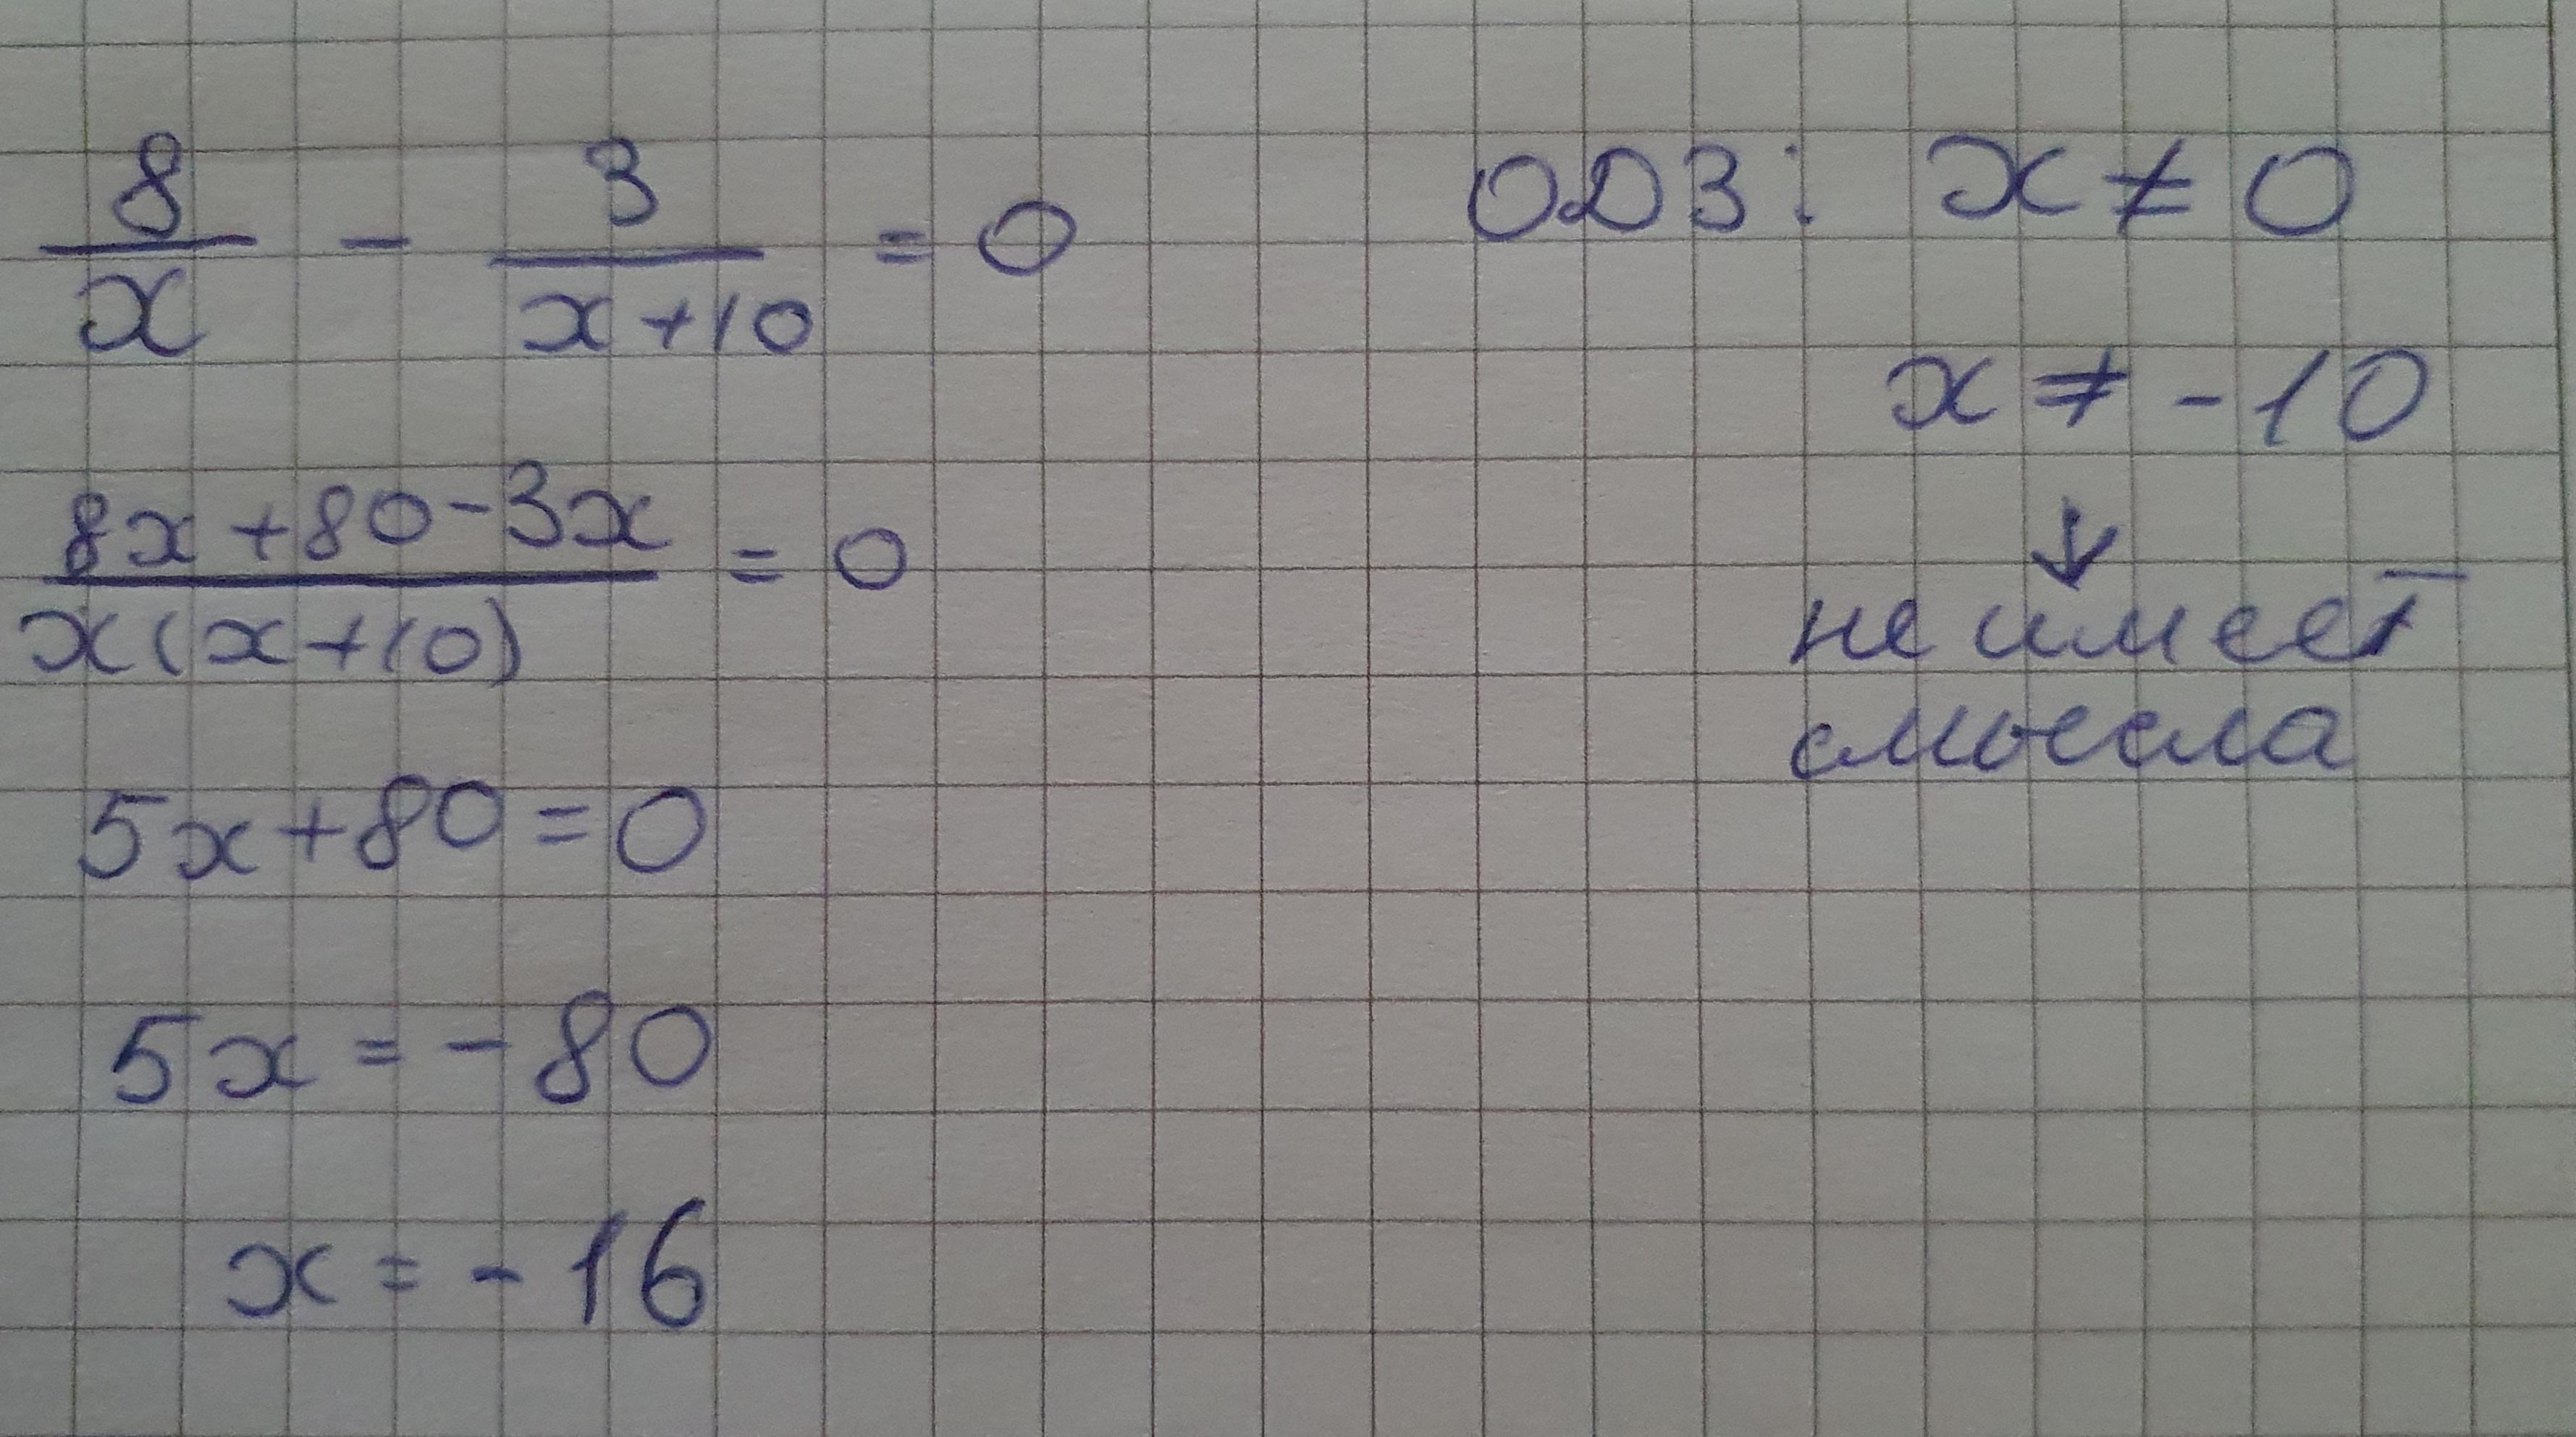 8/x - 3/(x+10) = 0
ОДЗ: x ≠ 0
x ≠ -10
(8x+80-3x)/(x(x+10)) = 0
↓
не имеет
смысла
5x+80=0
5x = -80
x = -16